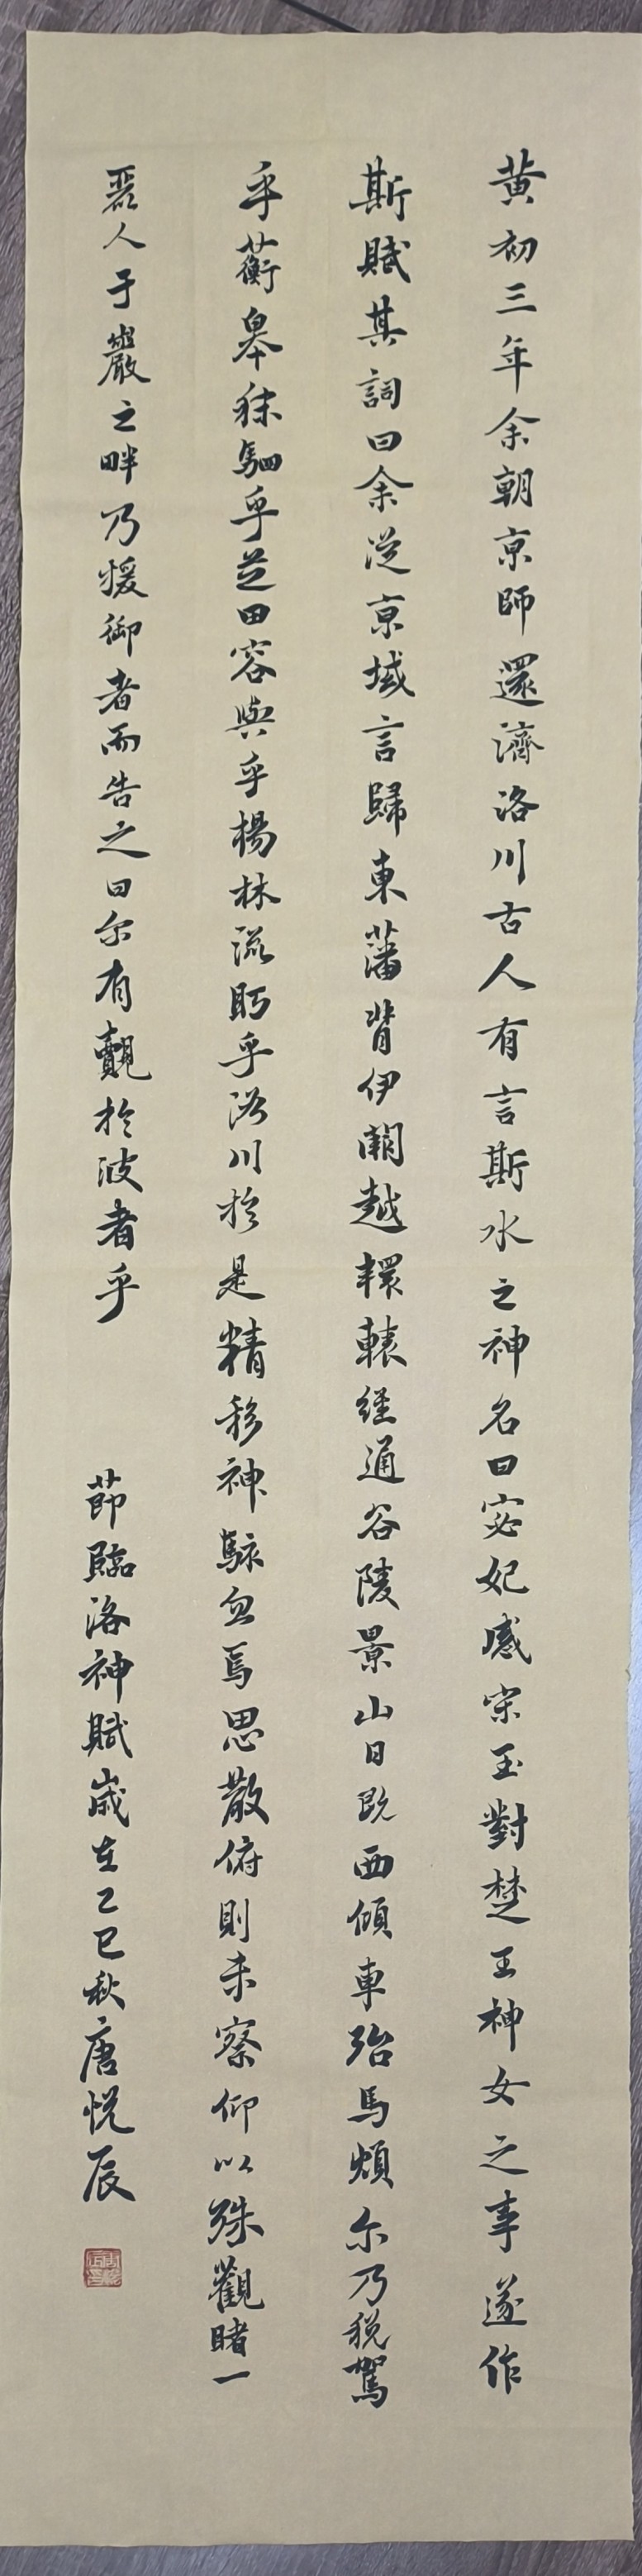 黄初三年余朝京師還濟洛川古人有言斯水之神名曰宓妃感宋玉對楚王神女之事遂作
斯賦其詞曰余從京域言歸東藩背伊闕越轘轅經通谷陵景山日既西傾車殆馬煩尔乃税駕
乎蘅皋秣駟乎芝田容與乎楊林流眄乎洛川於是精移神駭忽焉思散俯則未察仰以殊觀睹一
麗人于巖之畔乃援御者而告之曰尔有觌於彼者乎
節臨洛神賦歲在乙巳秋唐悦辰